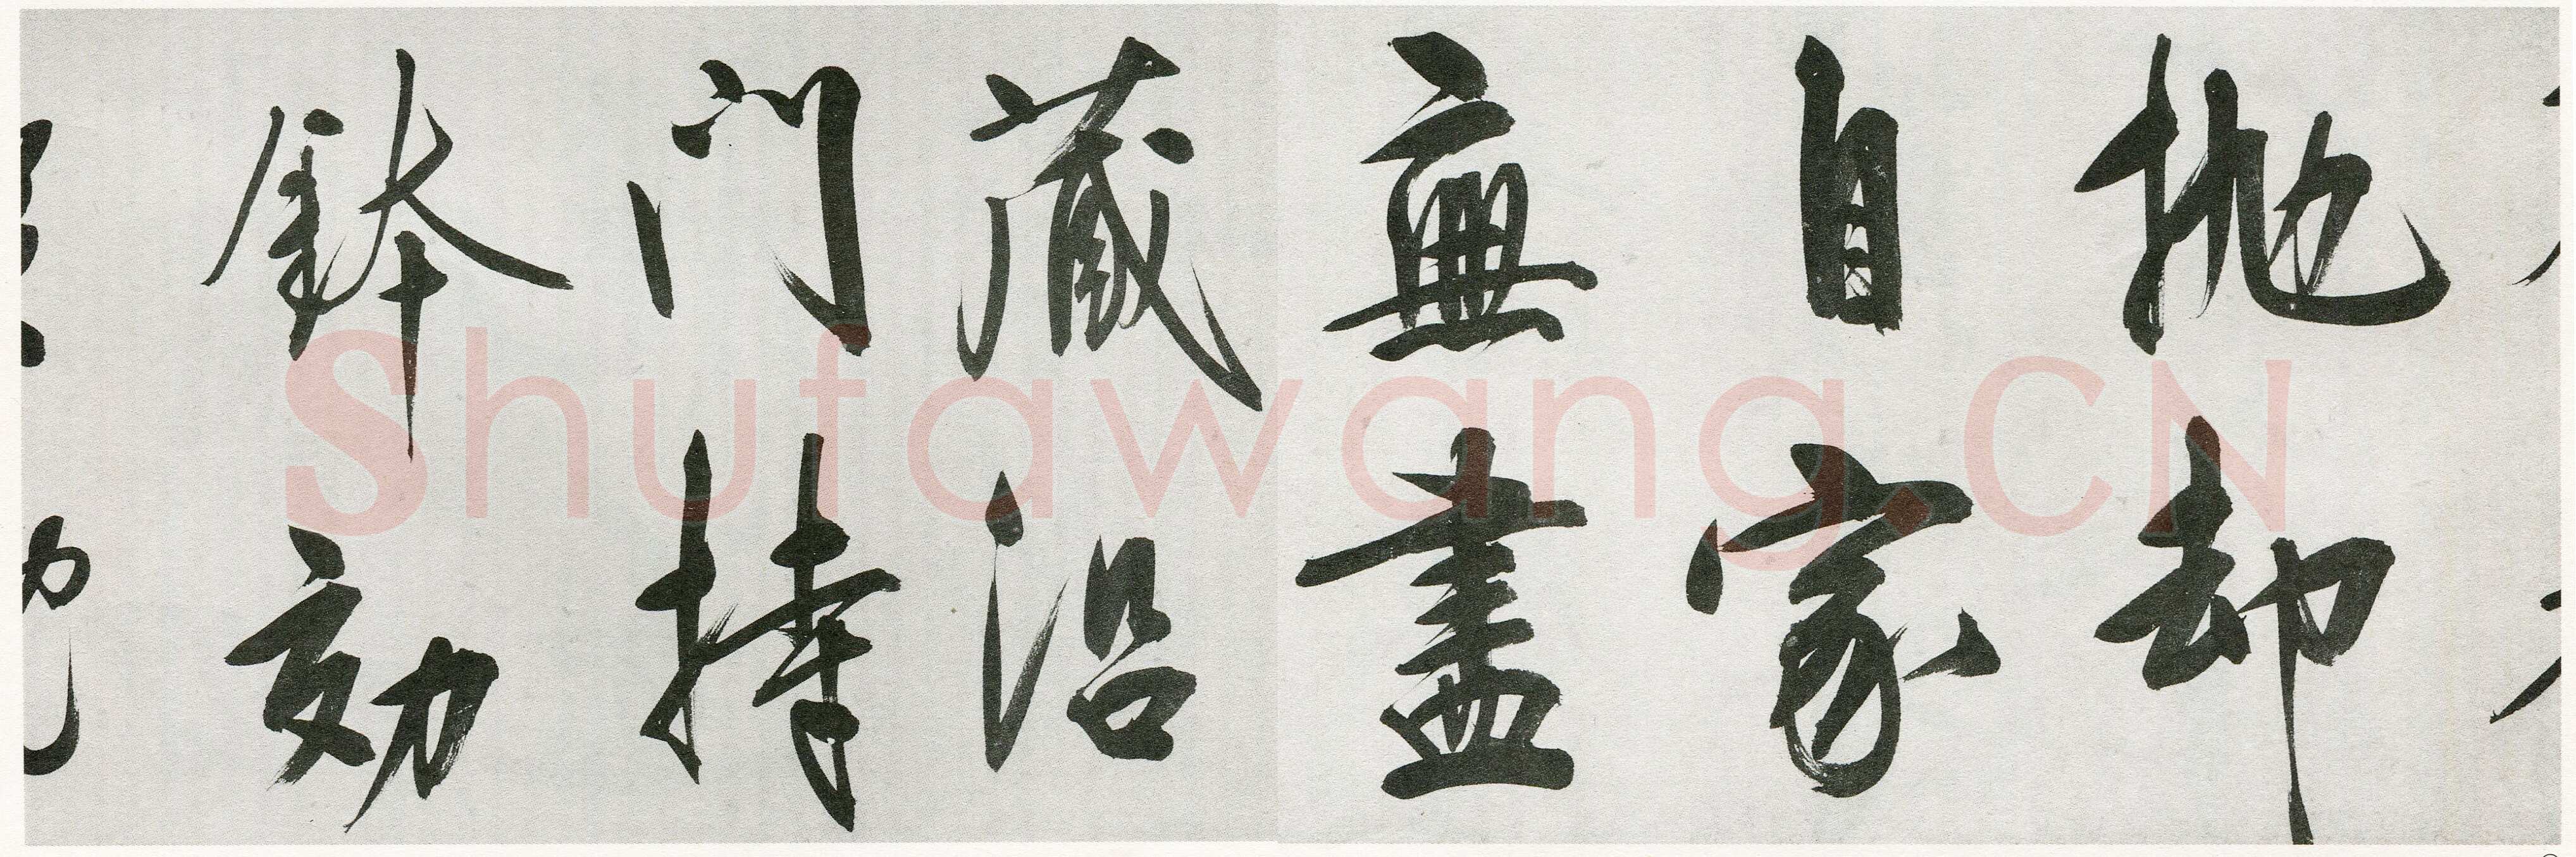 抛却
自家
無盡
藏沿
门持
鉢効
Shufawang.CN